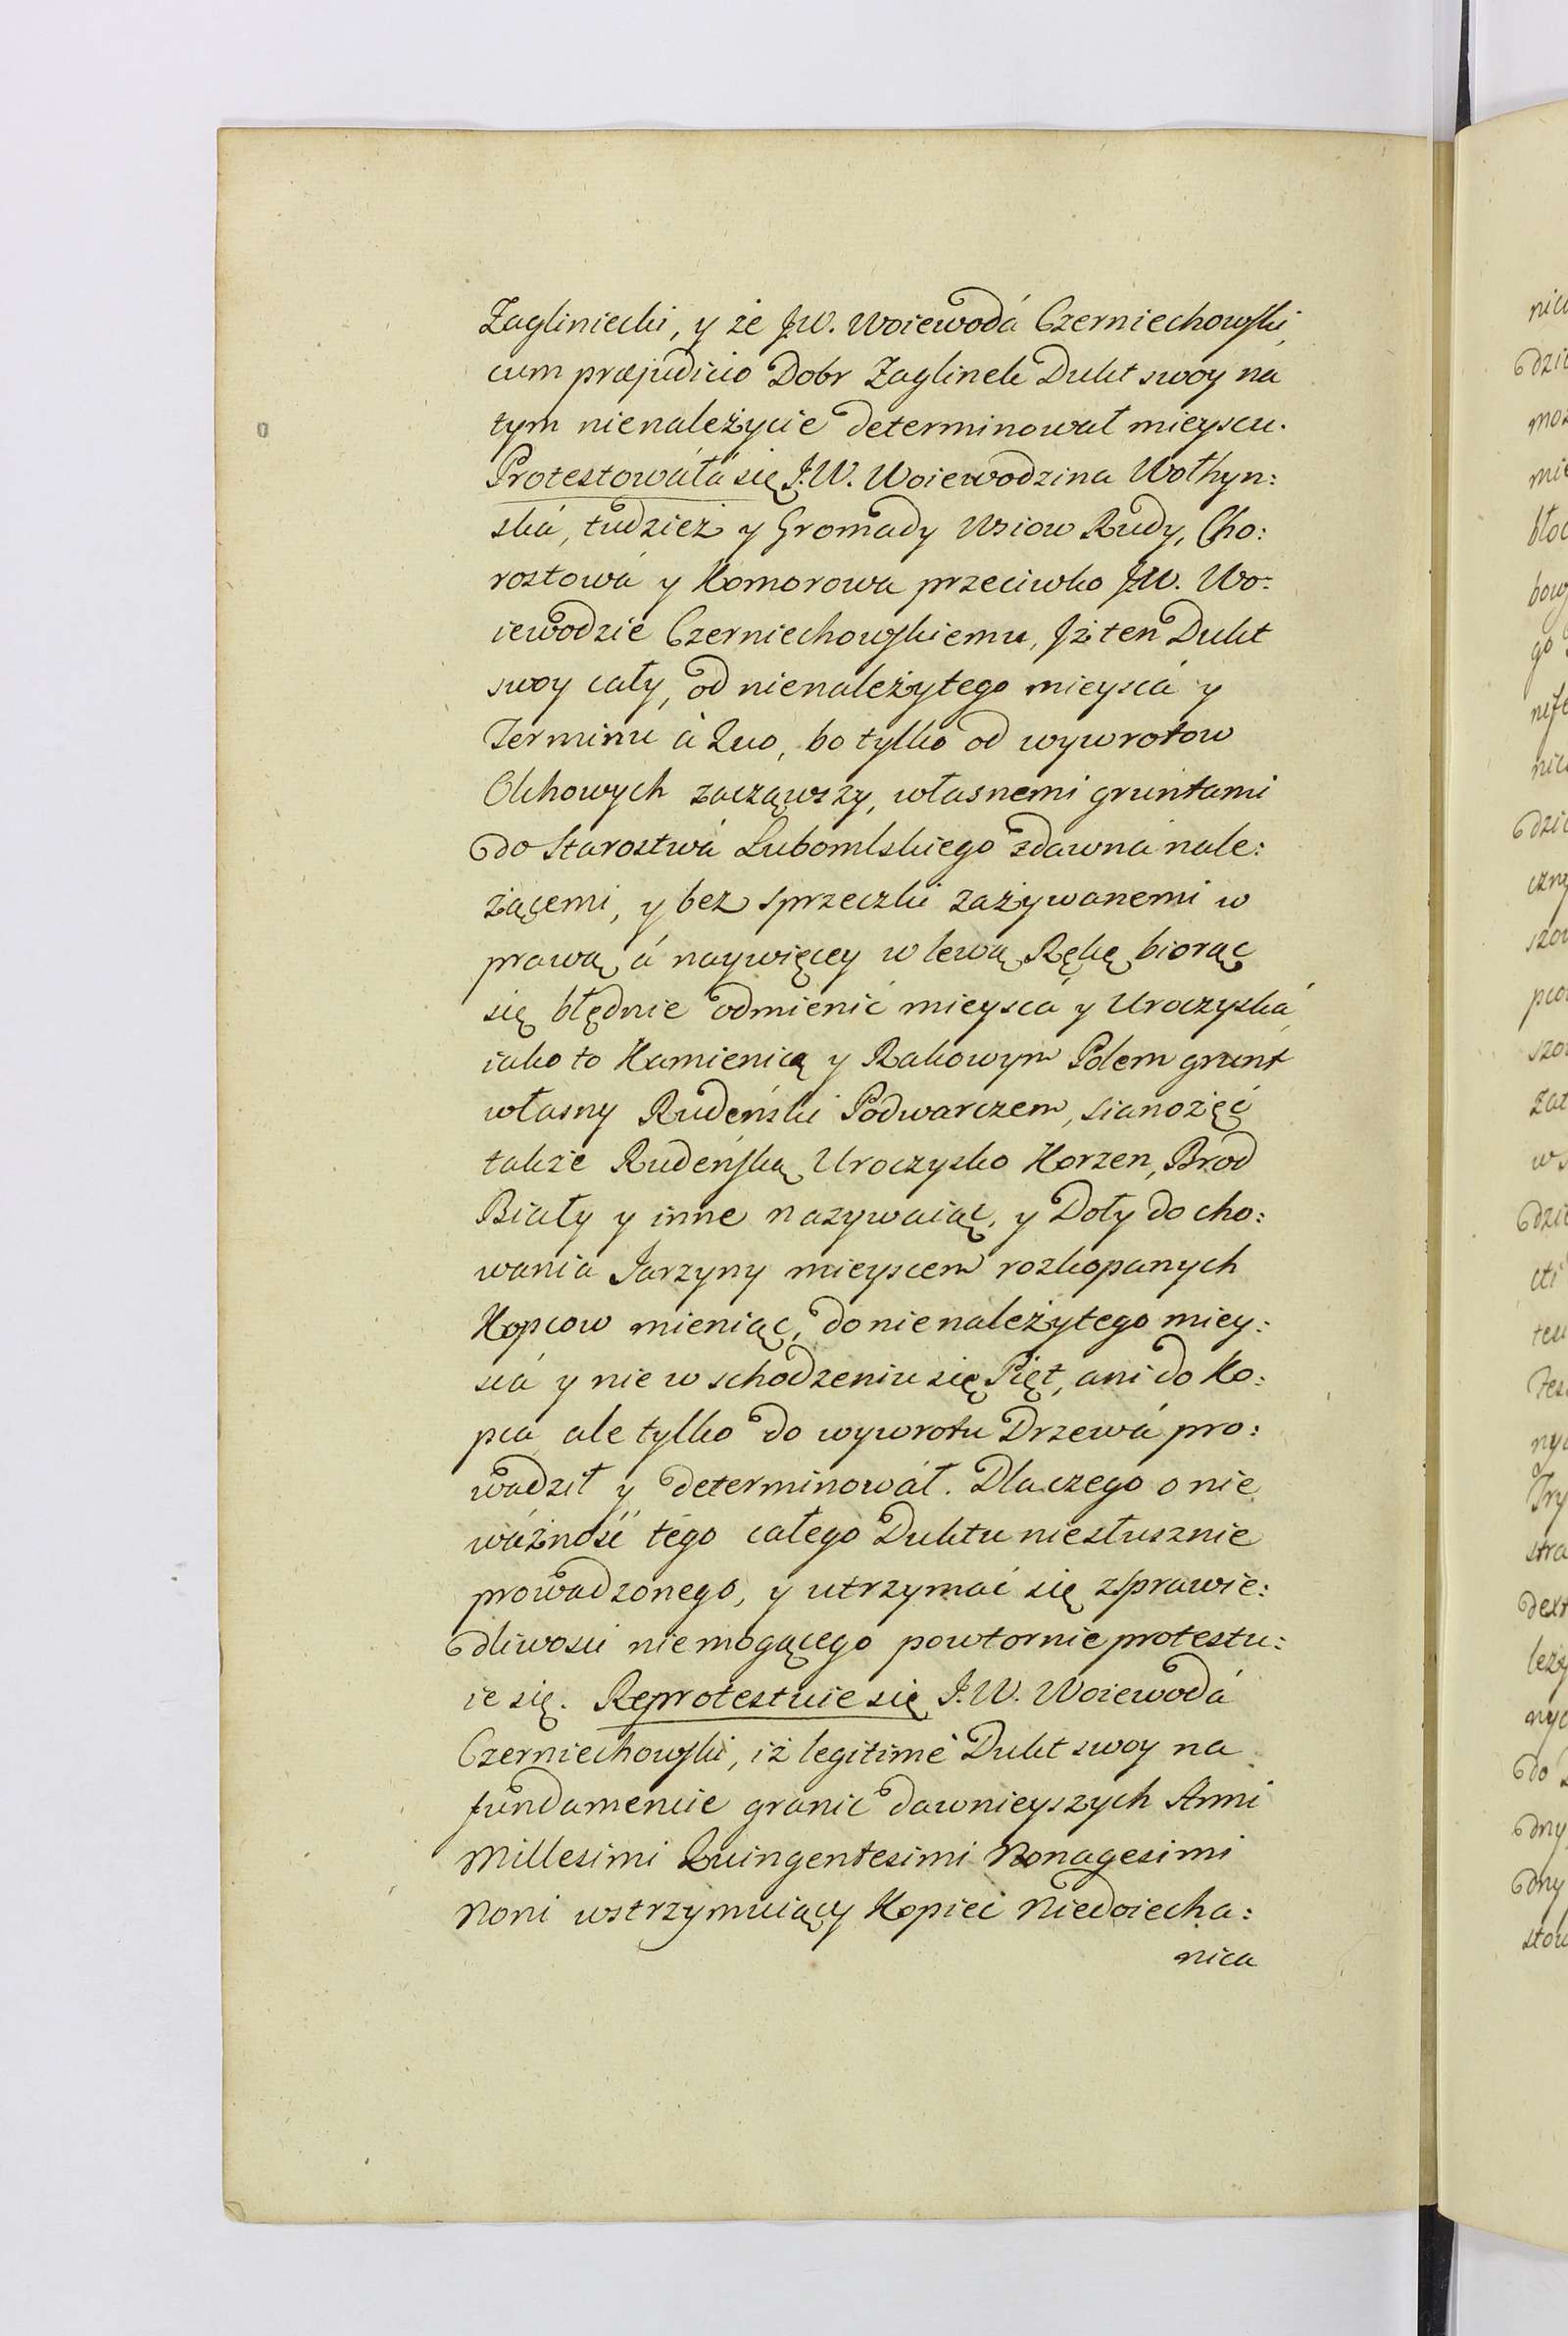 Zagliniecki, y że J.W. Woiewodá Czerniechowski,
cum præjudicio Dobr Zaglinek Dukt swoy ná
tym nienależycie determinował mieyscu.
Protestowáłá się J.W. Woiewodzina Wołhyn:
ská, tudzież y Gromady Wsiow Rudy, Cho:
rostowá y Komorowa przeciwko J.W. Wo:
iewodzie Czerniechowskiemu, Jż ten Dukt
swoy cały, od nienależytego mieyscá y
Terminu à Quo, bo tylko od wywrotow
Olchowych zacząwszy, własnemi gruntami
do Starostwá Lubomlskiego zdawná nale:
żącemi, y bez sprzeczki zażywanemi w
prawą á naywięcey w lewą Rękę biorąc
się błędnie odmienić mieyscá y Uroczyská,
iako to Kamienicą y Rakowym Polem grunt
własny Rudeński Podwarczem, sianożęć
także Rudeńską Uroczysko Korzen, Brod
Biały y inne nazywaiąc, y Doły do cho:
wania Jarzyny mieyscem rozkopanych
Kopcow mieniąc, do nienależytego miey:
scá y nie w schodzeniu się Pięt, ani do Ko:
pca ale tylko do wywrotu Drzewá pro:
wadził y determinowáł. Dlaczego o nie
wáżność tego całego Duktu niesłusznie
prowadzonego, y utrzymać się z sprawie:
dliwosci niemogącego powtornie protestu:
ie się. Reprotestuie się J.W. Woiewodá
Czerniechowski, iż legitimè Dukt swoy na
fundamencie granic dawnieyszych Anni
Millesimi Quingentesimi Nonagesimi
Noni wstrzymuiący Kopiec Niedoiecha:
nica